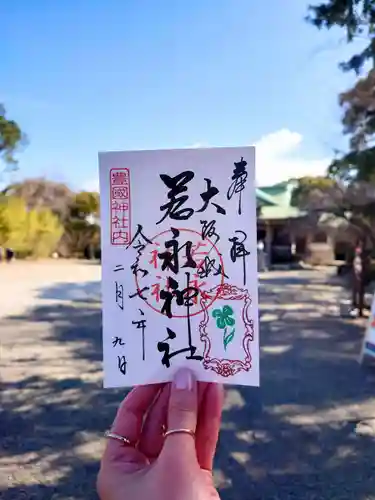 奉拝
大阪城
若永神社
令和七年
二月九日
豊國神社内